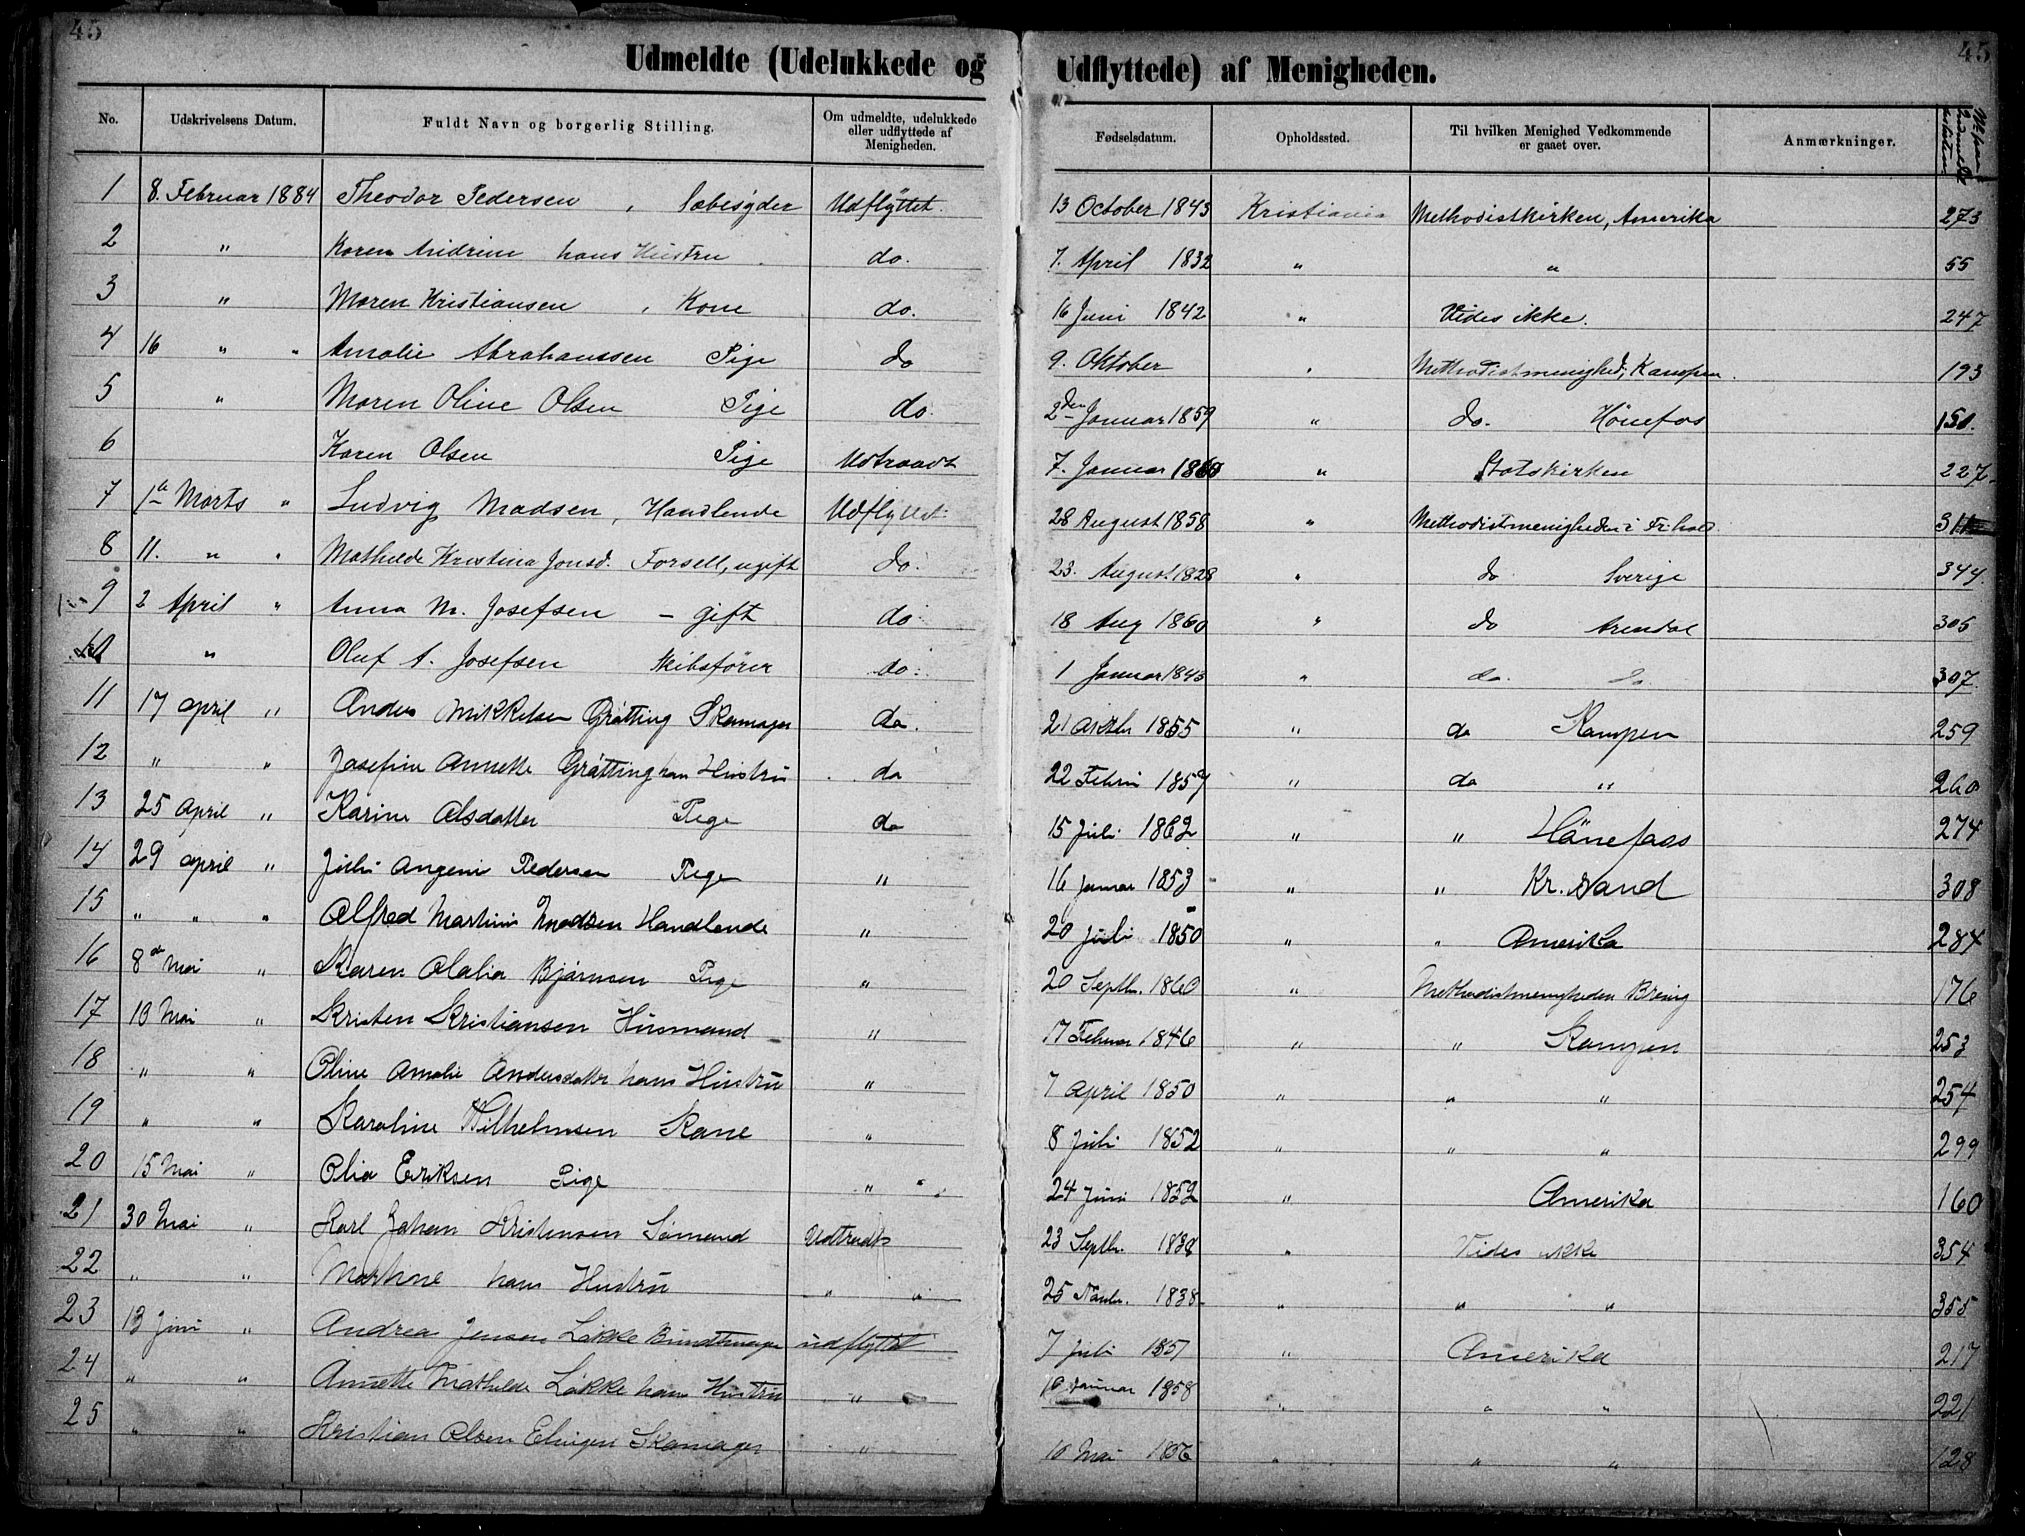 45 45
Udmeldte (Udelukkede og Udflyttede) af Menigheden.
No. Udskrivelsens Datum. Fuldt Navn og borgerlig Stilling. Om udmeldte, udelukkede eller udflyttede af Menigheden. Fødselsdatum. Opholdssted. Til hvilken Menighed Vedkommende er gaaet over. Anmærkninger.
1 8. Februar 1884 Theodor Pedersen, Sæbesyder Udflyttet. 13 October 1843 Kristiania Methodistkirken, Amerika 273
2 " Karen Andrine hans Hustru do. 7. April 1832 " " 55
3 " Maren Kristiansen, Kone do. 16 Juni 1842 " Vides ikke. 247
4 16 " " Amalie Abrahamssen Pige do 9. Oktober " Methodistmenighed, Kampen. 193
5 " Maren Oline Olsen Pige do. 2den Januar 1859 " do. Hønefos 151.
6 Karen Olsen Pige Udtraadt 7. Januar 1860 " Statskirken 227.
7 1ste Marts " Ludvig Madsen, Handlende Udflyttet 28 August 1858 " Methodistmenigheden i Fr.hald. 311
8 11. " " Mathilde Kristina Jonsd. Forsell, ugift do. 23. August 1828 " do Sverige 344.
9 2 April " Anna M. Josefsen - gift do 18 Aug 1860 " do Arendal 305
10 " Oluf A. Josefsen Skibsfører do. 1 Januar 1843 " do. do 307.
11 17 april " Anders Mikkelsen Gråtting Skomager do. 21 Oktbr 1855 " do Kampen 259
12 " " Josefine Annette Gråtting hans Hustru do 22 Febru 1857 " do " 260
13 25 april " Karine Olsdatter Pige do 15 Juli 1862 " " Hönefoss 274
14 29 april " Julie Angeni Pedersen Pige " 16 Januar 1853 " " Kr. sand 308
15 " " " Alfred Martinius Madsen Handlende " 20 Juli 1850 " " Amerika 284
16 8de Mai " Karen Olalia Bjørnsen Pige " 20 Septbr. 1860 " Methodistmenigheden Brevig 176
17 10 Mai " Kristen Kristiansen Husmand " 17 Februar 1846 " " Kampen 253
18 " " Oline Amalie Andersdatter hans Hustru " 7 april 1850 " " " 254
19 " " Karoline Wilhelmsen Kone " 8 Juli 1852 " " " 299
20 15 Mai " Olia Eriksen Pige " " 24 Juni 1852 " Amerika 160
21 30 Mai " Karl Johan Kristensen Sömand Udtradt 23 Septbr. 1838 " Vides ikke 354
22 " " Martine hans Hustru " " 25 Novbr. 1838 " " " 355
23 13 Juni " Andrea Jensen Løkke Bundtmager udflyttet 7 Juli 1857 " Amerika 217
24 " " Annette Mathilde Løkke hans Hustru " 10 Januar 1858 " " " 221
25 " " Kristian Olsen Skomager " 10 Mai 1856 " " " 128